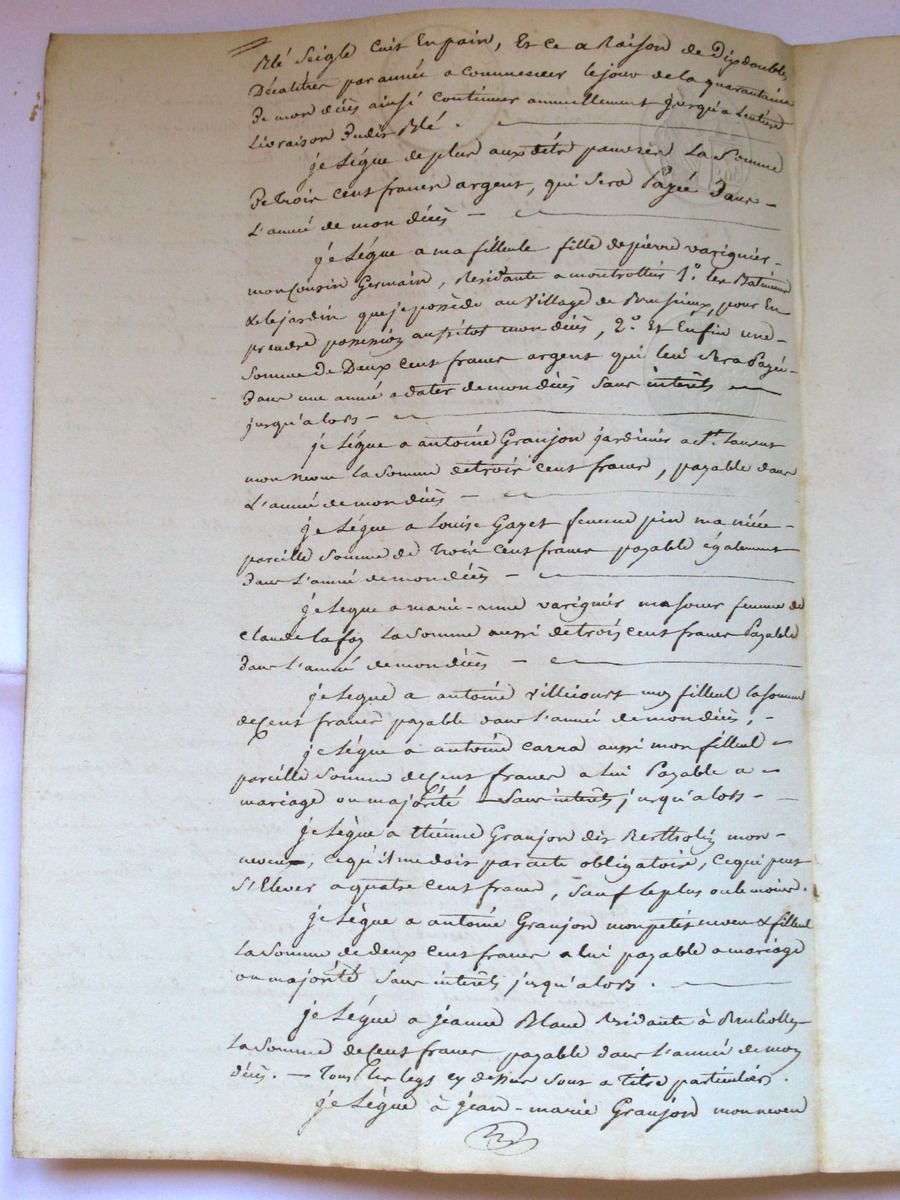 Blé Seigle Cuit En pain, Et ce a Raison de Dix doubles
Décalitres par année a commencer le jour de la quarantaine
De mon décès ainsi continuer annuellement jusqu'a Lentiere
Livraison dudit Blé. —
je Lègue de plus aux dits pauvres La Somme
De trois cent francs argent, qui Sera Payée Dans —
L'année de mon décès —
je Lègue a ma filleule fille de pierre varignier —
mon Cousin Germain, Residante a montrottier 1º. les Batiments
& le jardin que je possède au Village de , pour En
prendre possession aussitot mon décès, 2º. Et Enfin une —
Somme de Deux Cent francs argent qui leui Sera Payée —
Dans une année a dater de mon décès Sans intérêts —
jusqu'alors —
je Lègue a antoine Granjon jardinier a St. Laurent
mon neveu la Somme de trois Cent francs, payable dans
L'année de mon décès —
je Lègue a Louise Gayet femme pin ma nièce —
pareille Somme de Trois Cent francs payable également
dans L'année de mon décès —
je Legue a marie-anne varignier ma Soeur femme de
Claude lafay La Somme aussi de trois Cent francs Payable
dans L'année de mon décès —
je Legue a antoine Villecourt mon filleul la Somme
de Cent francs payable dans L'année de mon décès, —
je Lègue a antoine Carra aussi mon filleul —
pareille Somme de Cent francs a lui Payable a —
mariage ou majorité — Sans intérêts jusqu'alors —
je Lègue a Etienne Granjon dit Bertholy mon —
neveu, Ce qu'il me doit par acte obligatoire, Ce qui peut
S'Elever a quatre Cent francs, Sauf le plus ou le moins.
je Lègue a antoine Granjon mon petit neveu & filleul
La Somme de deux Cent francs a lui payable a mariage
ou majorité Sans intérêts jusqu'alors. —
je Lègue a jeanne Blanc Residante à
La Somme de Cent francs payable dans L'année de mon
décès. — Tous les legs cy dessus Sont a titre particulier.
je Lègue à jean-marie Granjon mon neveu